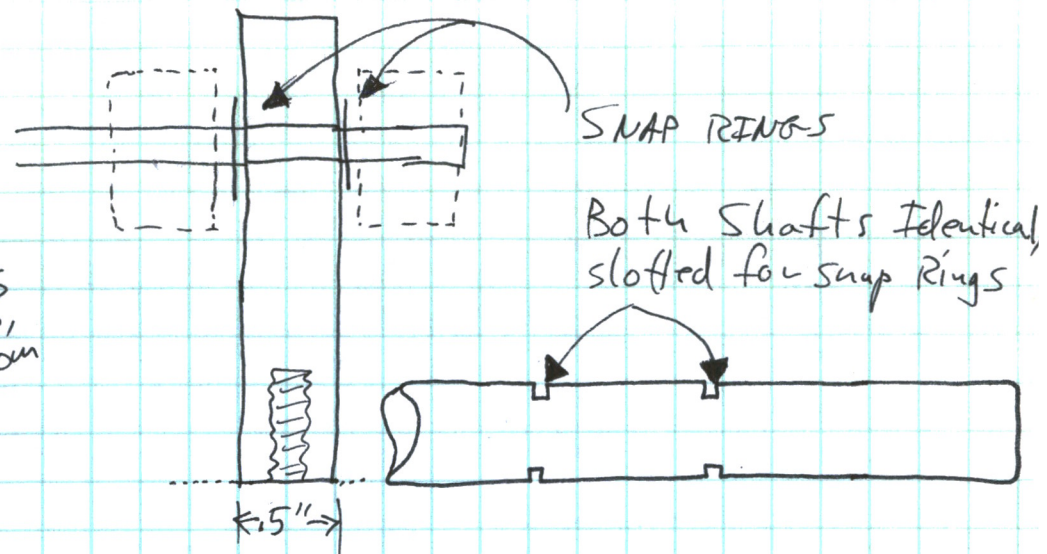 SNAP RINGS
Both Shafts Identical,
slotted for snap Rings
.5"